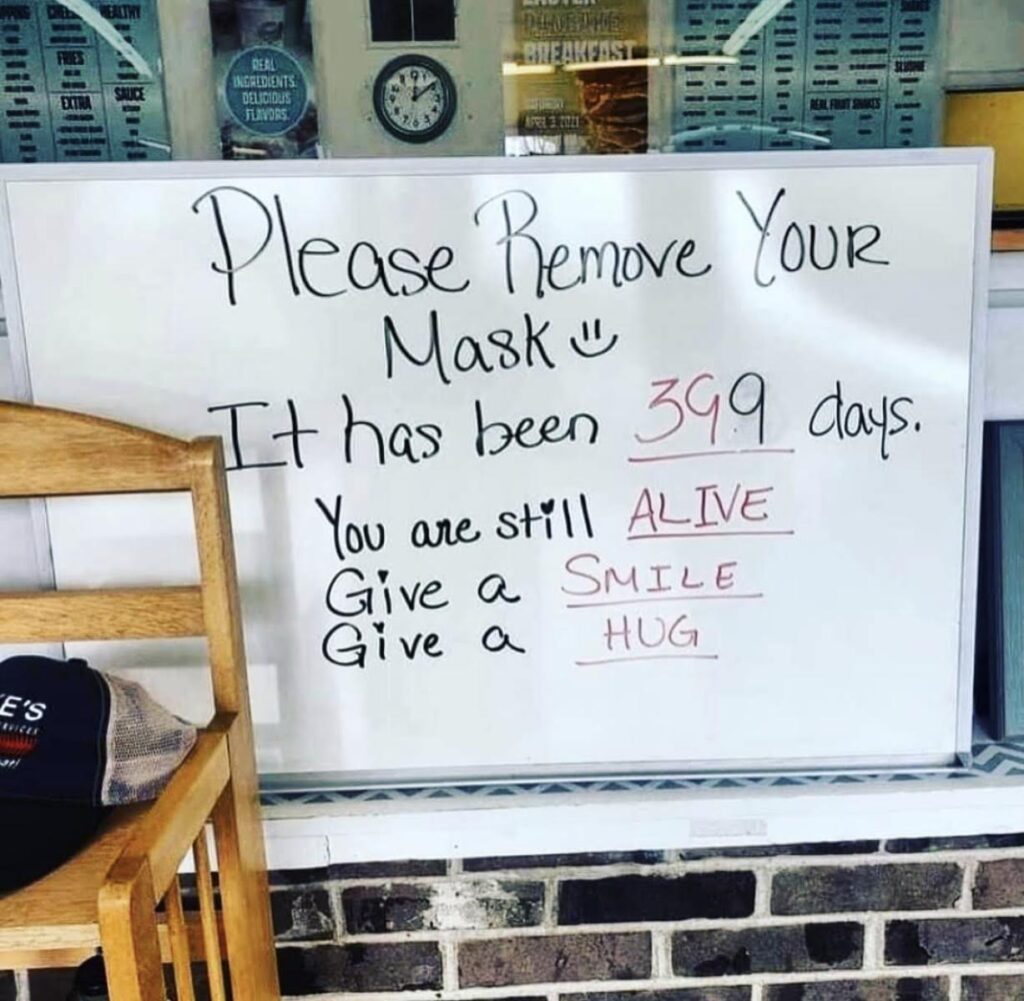 HEALTHY
FRIES
EXTRA
SAUCE
REAL
INGREDIENTS.
DELICIOUS
FLAVORS.
BREAKFAST
SATURDAY
APRIL 3, 2021
REAL FRUIT SHAKES
Please Remove Your
Mask
It has been 399 days.
You are still ALIVE
Give a SMILE
Give a HUG
E'S